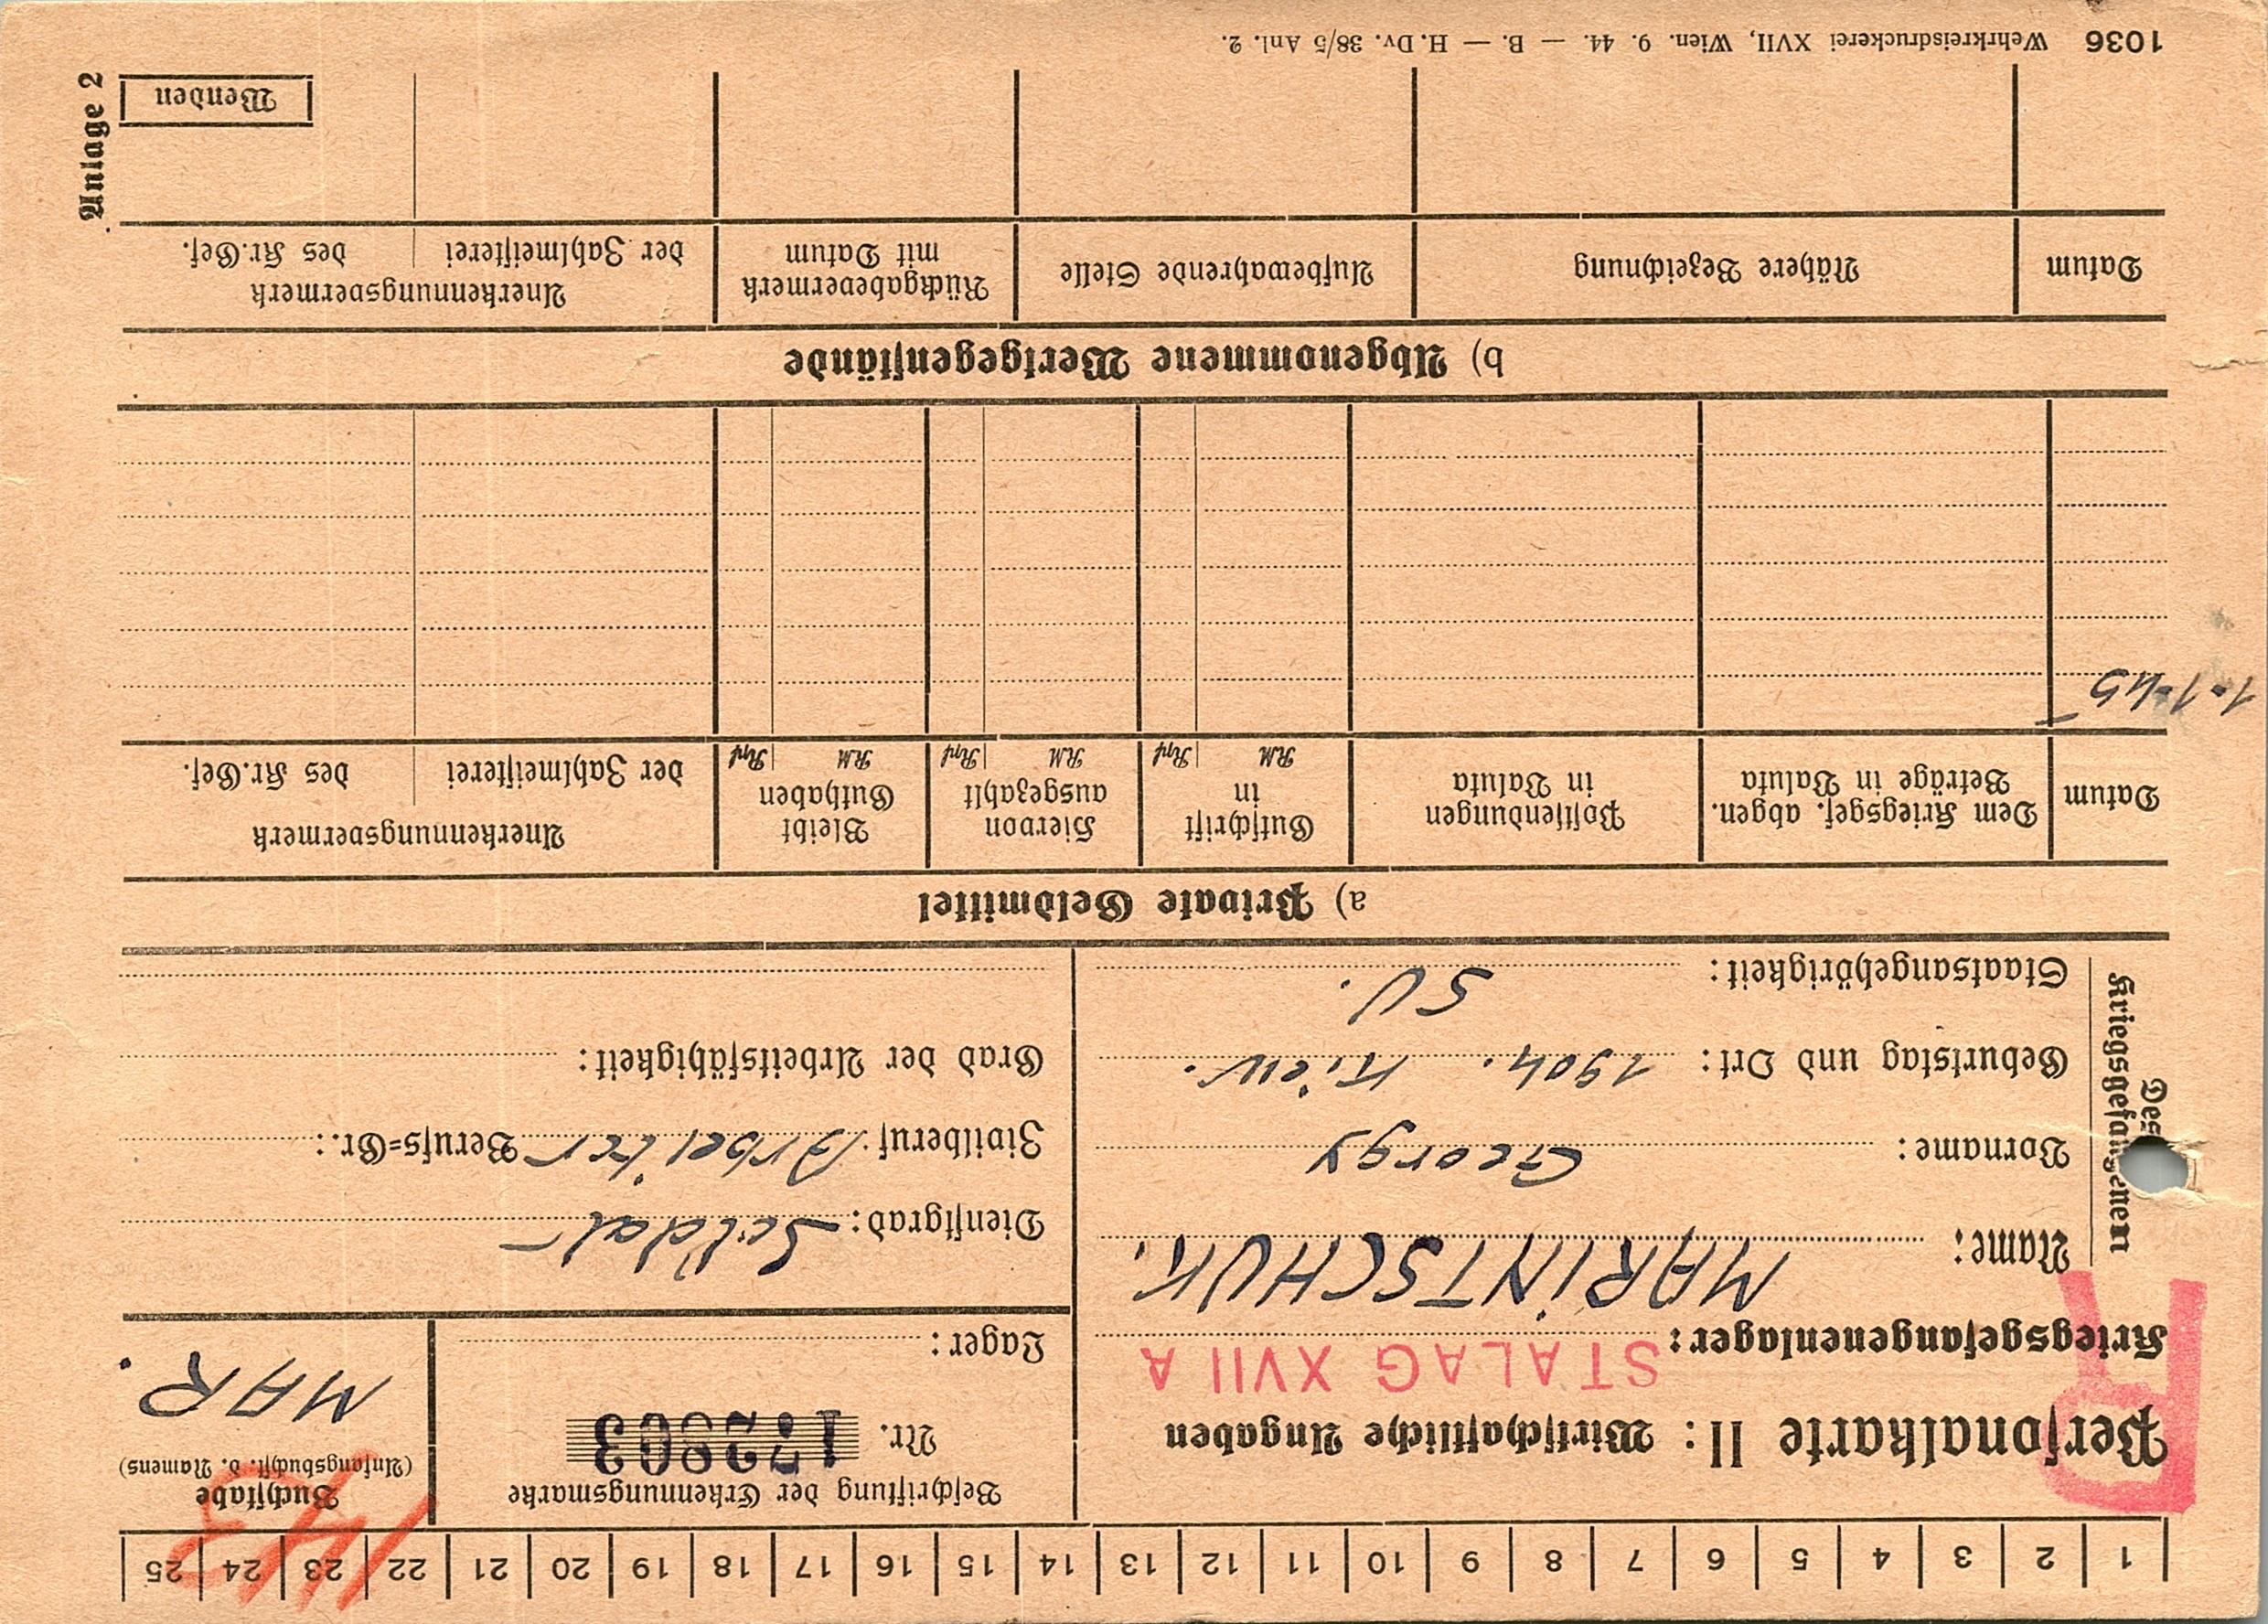 1 2 3 4 5 6 7 8 9 10 11 12 13 14 15 16 17 18 19 20 21 22 23 24 25
R
Personalkarte II: Wirtschaftliche Angaben
Kriegsgefangenenlager: STALAG XVII A
Beschriftung der Erkennungsmarke
Nr. 172803
Lager:
Buchstabe
(Anfangsbuchst. d. Namens)
MAR.
Des Kriegsgefangenen
Name: MARINTSCHUK.
Vorname: Georgy
Geburtstag und Ort: 1904. Kiew.
Staatsangehörigkeit: SU.
Dienstgrad: Soldat
Zivilberuf: Arbeiter Berufs=Gr.:
Grad der Arbeitsfähigkeit:
a) Private Geldmittel
Datum
Dem Kriegsgef. abgen. Beträge in Valuta
Postsendungen in Valuta
Gutschrift in
RM Rpf
Hiervon ausgezahlt
RM Rpf
Bleibt Guthaben
RM Rpf
Anerkennungsvermerk
der Zahlmeisterei des Kr.Gef.
1-1-45
b) Abgenommene Wertgegenstände
Datum
Nähere Bezeichnung
Aufbewahrende Stelle
Rückgabevermerk mit Datum
Anerkennungsvermerk
der Zahlmeisterei des Kr.Gef.
Wenden
Anlage 2
1036 Wehrkreisdruckerei XVII, Wien. 9. 44. — B. — H. Dv. 38/5 Anl. 2.